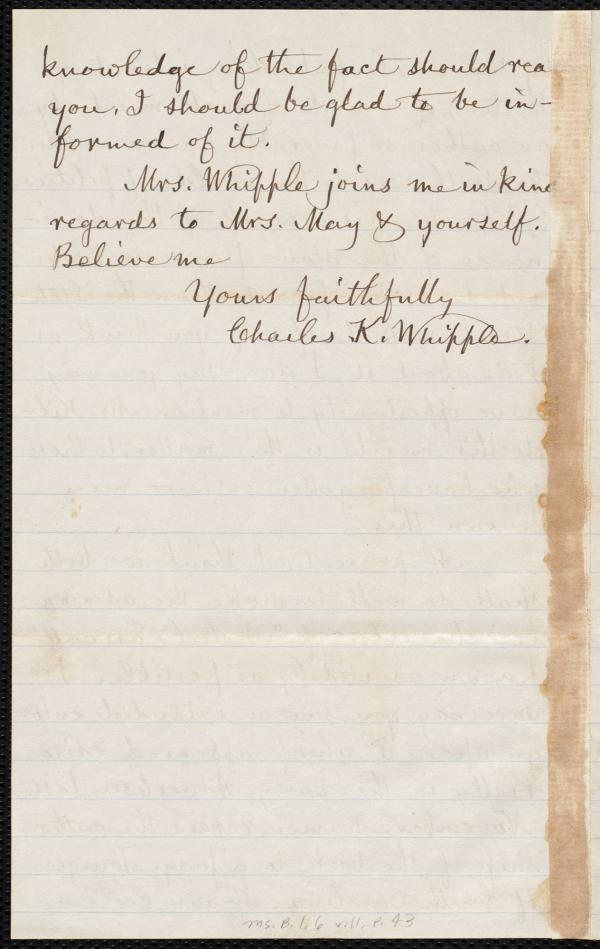 knowledge of the fact should rea
you, I should be glad to be in-
formed of it.
Mrs. Whipple joins me in kind
regards to Mrs. May & yourself.
Believe me
Yours faithfully
Charles K. Whipple.
Ms. B. 1. 6 viii, p. 43